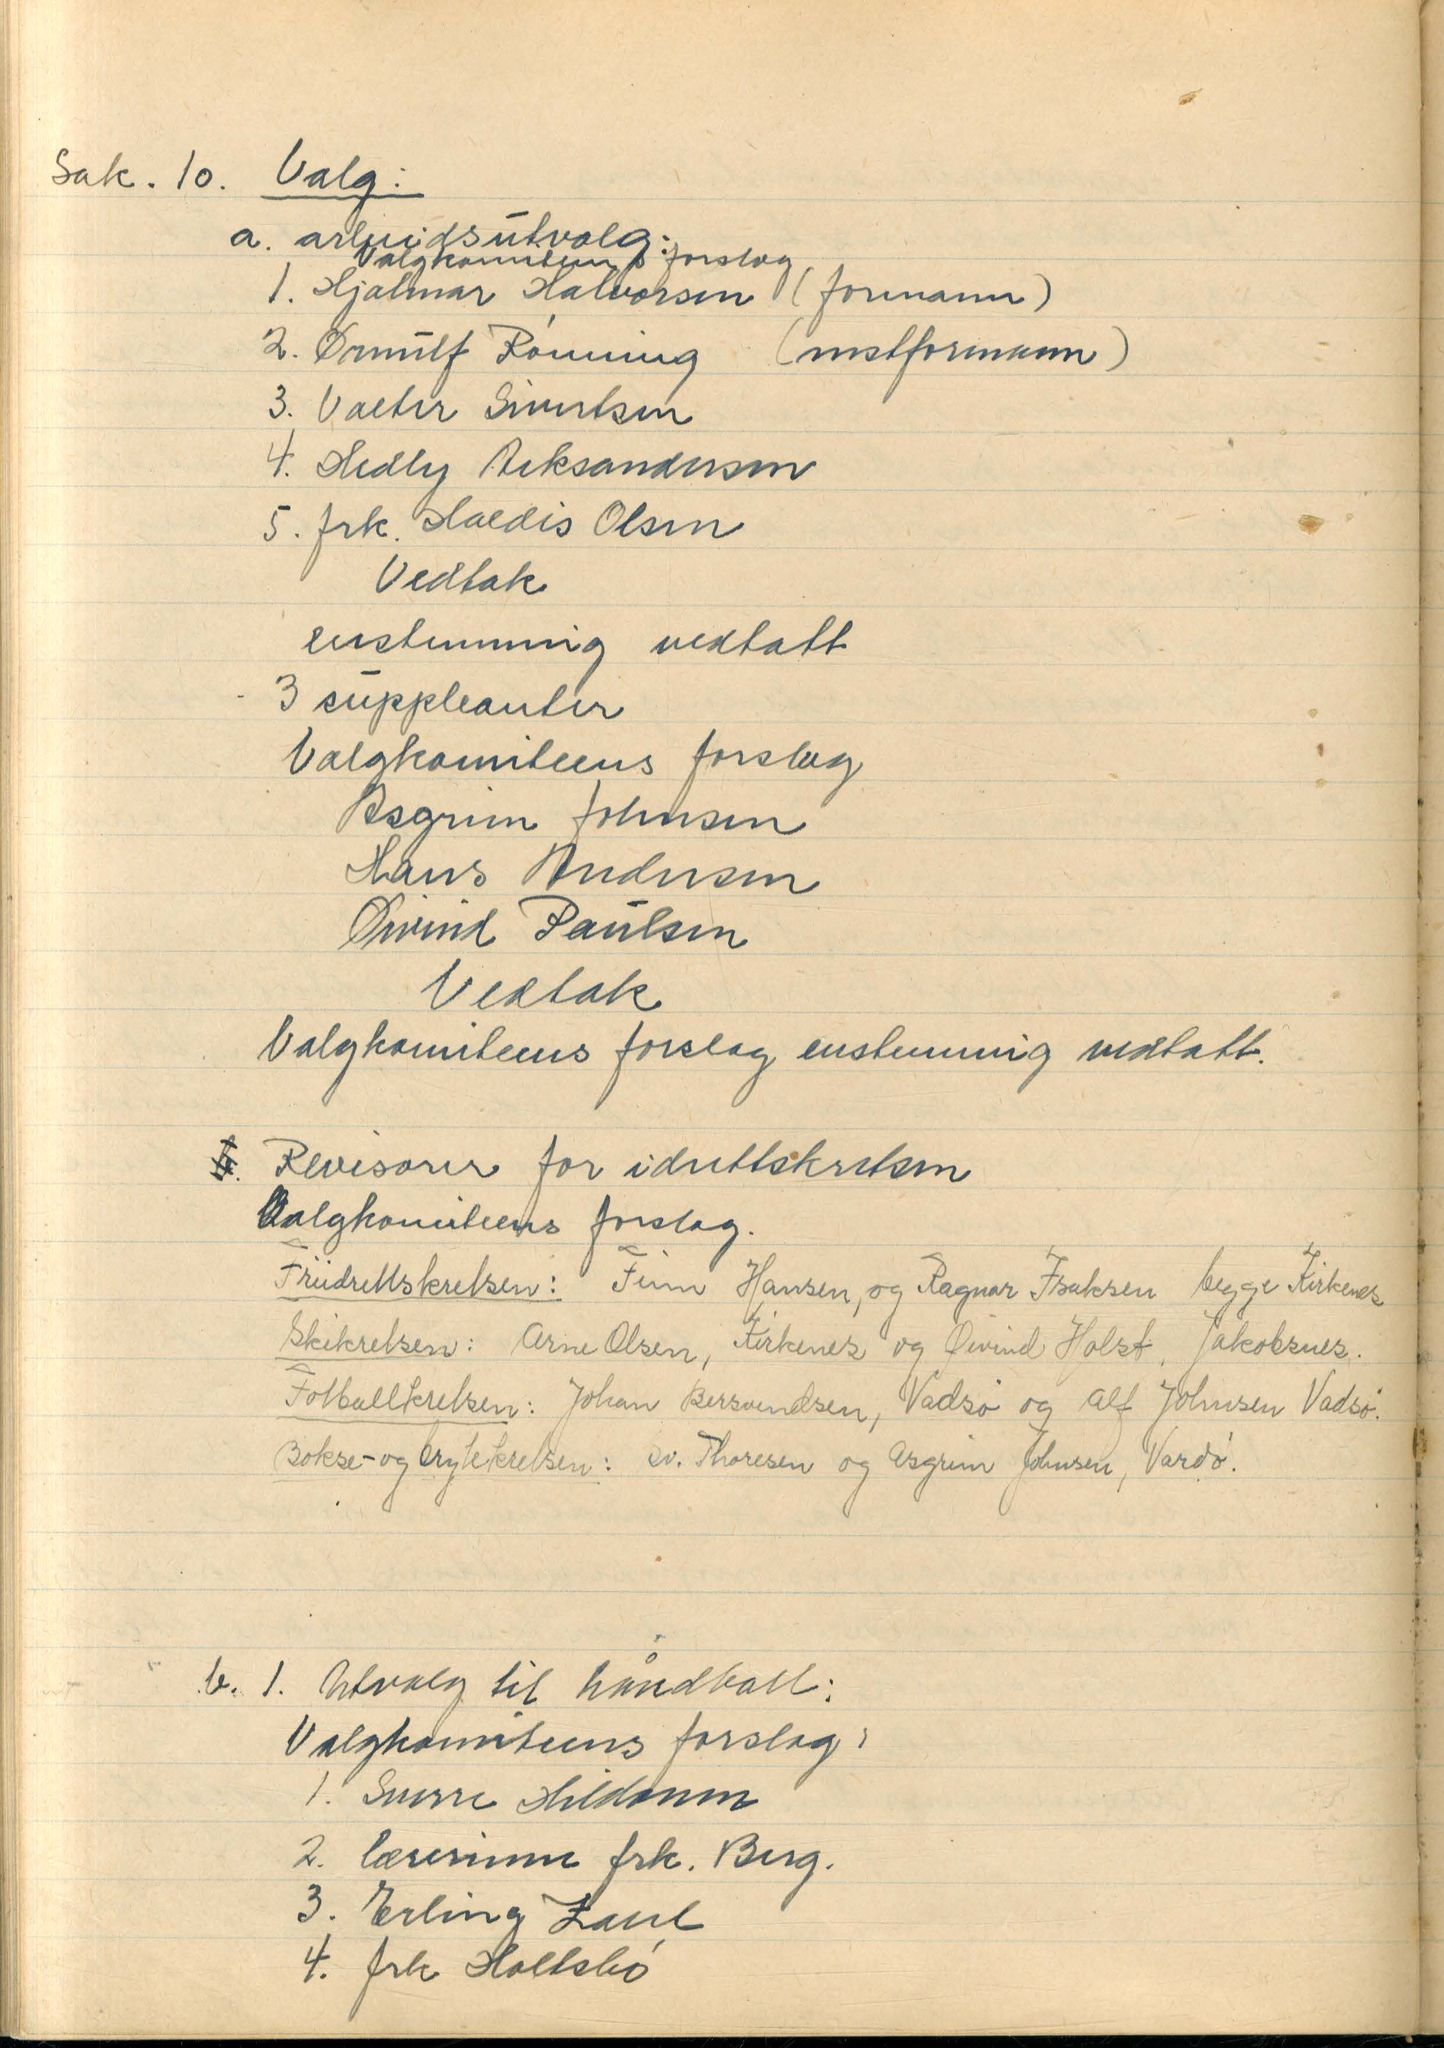 Sak. 10. Valg:
a. arbeidsutvalg:
Valgkomiteens forslag
1. Hjalmar Halvorsen (formann)
2. Ørnulf Rønning (nestformann)
3. Valter Sivertsen
4. Hedly Aleksandersen
5. frk. Haldis Olsen
Vedtak
enstemmig vedtatt
3 suppleanter
Valgkomiteens forslag
Asgrim Johnsen
Hans Andersen
Øivind Paulsen
Vedtak
Valgkomiteens forslag enstemmig vedtatt.
Revisorer for idrettskretsen
Valgkomiteens forslag.
Friidrettskretsen: Finn Hansen, og Ragnar Isaksen begge Kirkenes
Skikretsen: Arne Olsen, Kirkenes og Øivind Holst, Jakobsnes.
Fotballkretsen: Johan Bersvendsen, Vadsø og Alf Johnsen Vadsø.
Bokse- og brytekretsen: Ev. Thoresen og Asgrim Johnsen, Vardø.
b. 1. Utvalg til håndball:
Valgkomiteens forslag:
1. Sverre Hildonen
2. lærerinne frk. Berg.
3. Erling
4. frk Holtsbø